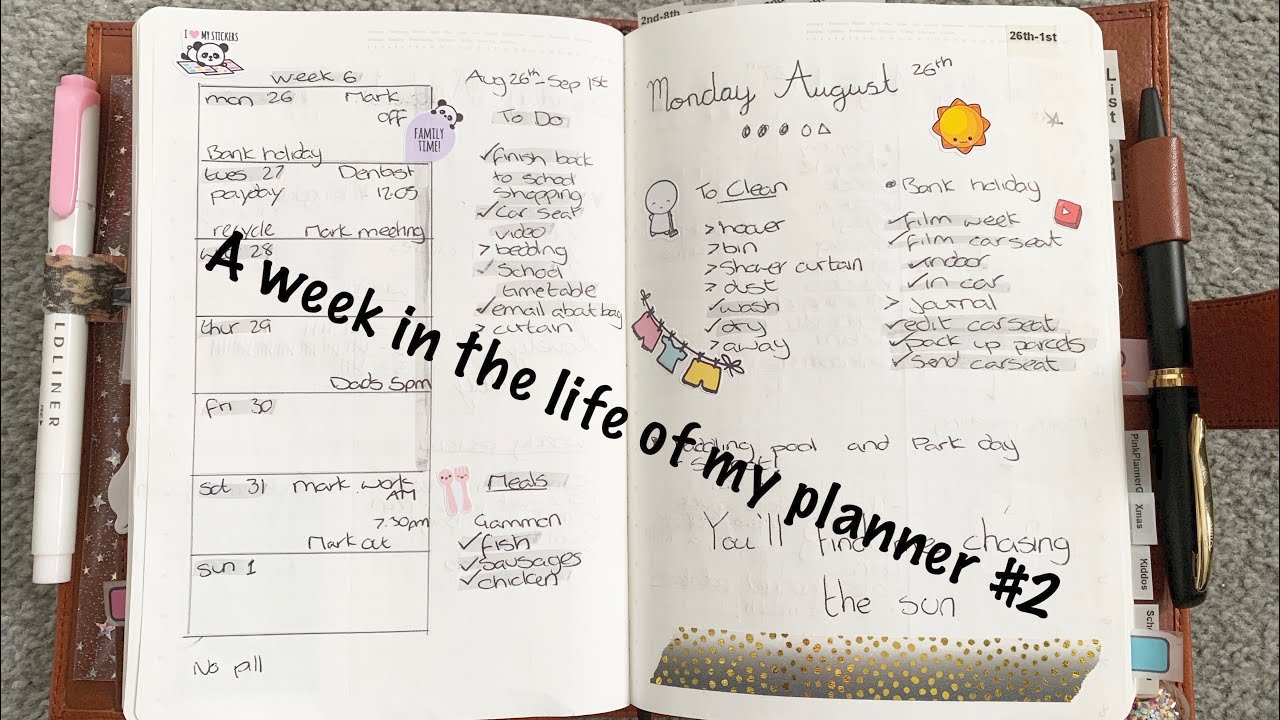 I ♥ MY STICKERS
week 6
Aug 26th - Sep 1st
mon 26 Mark off
Bank holiday
FAMILY TIME!
tues 27 Dentist
payday 12.05
recycle Mark meeting
28
thur 29
Dads 5pm
fri 30
sat 31 mark work AM
7.30pm
Mark out
sun 1
No pill
To Do
✓ finish back
to school
shopping
✓ car seat
video
> bedding
✓ School
timetable
✓ email about bag
> curtain
Meals
Gammon
✓ fish
✓ sausages
✓ chicken
2nd-8th
26th-1st
Monday August 26th
To Clean
> hoover
> bin
> shower curtain
> dust
✓ wash
✓ dry
> away
• Bank holiday
✓ film week
✓ film carseat
✓ indoor
✓ in car
> journal
✓ edit carseat
✓ pack up parcels
✓ send carseat
pool and Park day
You'll find chasing
the sun
A week in the life of my planner #2
LDLINER
List
PinkPlannerG
Xmas
Kiddos